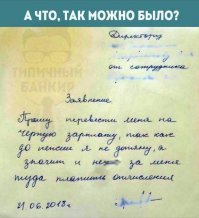 А ЧТО, ТАК МОЖНО БЫЛО?
ТИПИЧНЫЙ
БАНКИР
Директору
от сотрудника
Заявление
Прошу перевести меня на
черную зарплату, так как
до пенсии я не доживу, а
значит и не за меня
туда платить отчисления
21.06.2018г.